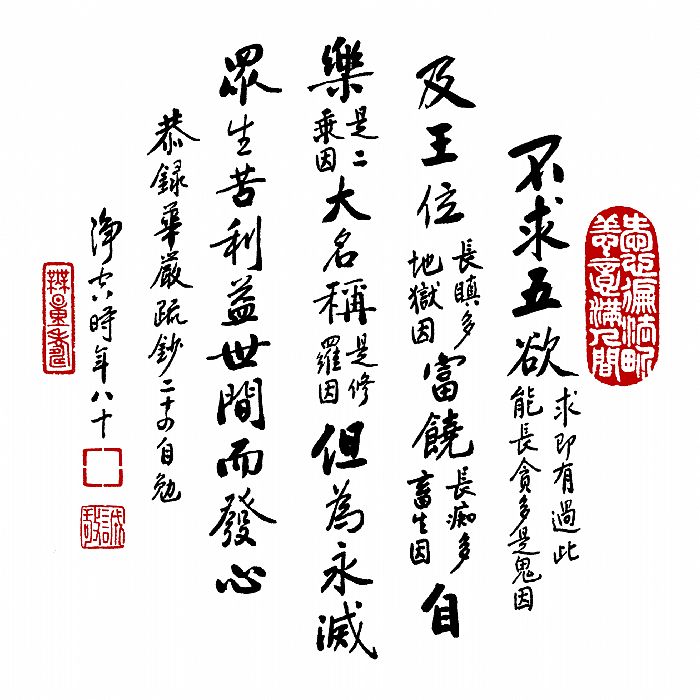 善心徧法界
善意滿人間
不求五欲
求即有過此
能長貪多是鬼因
及王位
長瞋多
地獄因
富饒
長痴多
畜生因
自
樂
是二
乘因
大名稱
是修
羅因
但為永滅
眾生苦利益世間而發心
恭録華嚴疏鈔二十四自勉
淨空時年八十
誠敬
無量壽